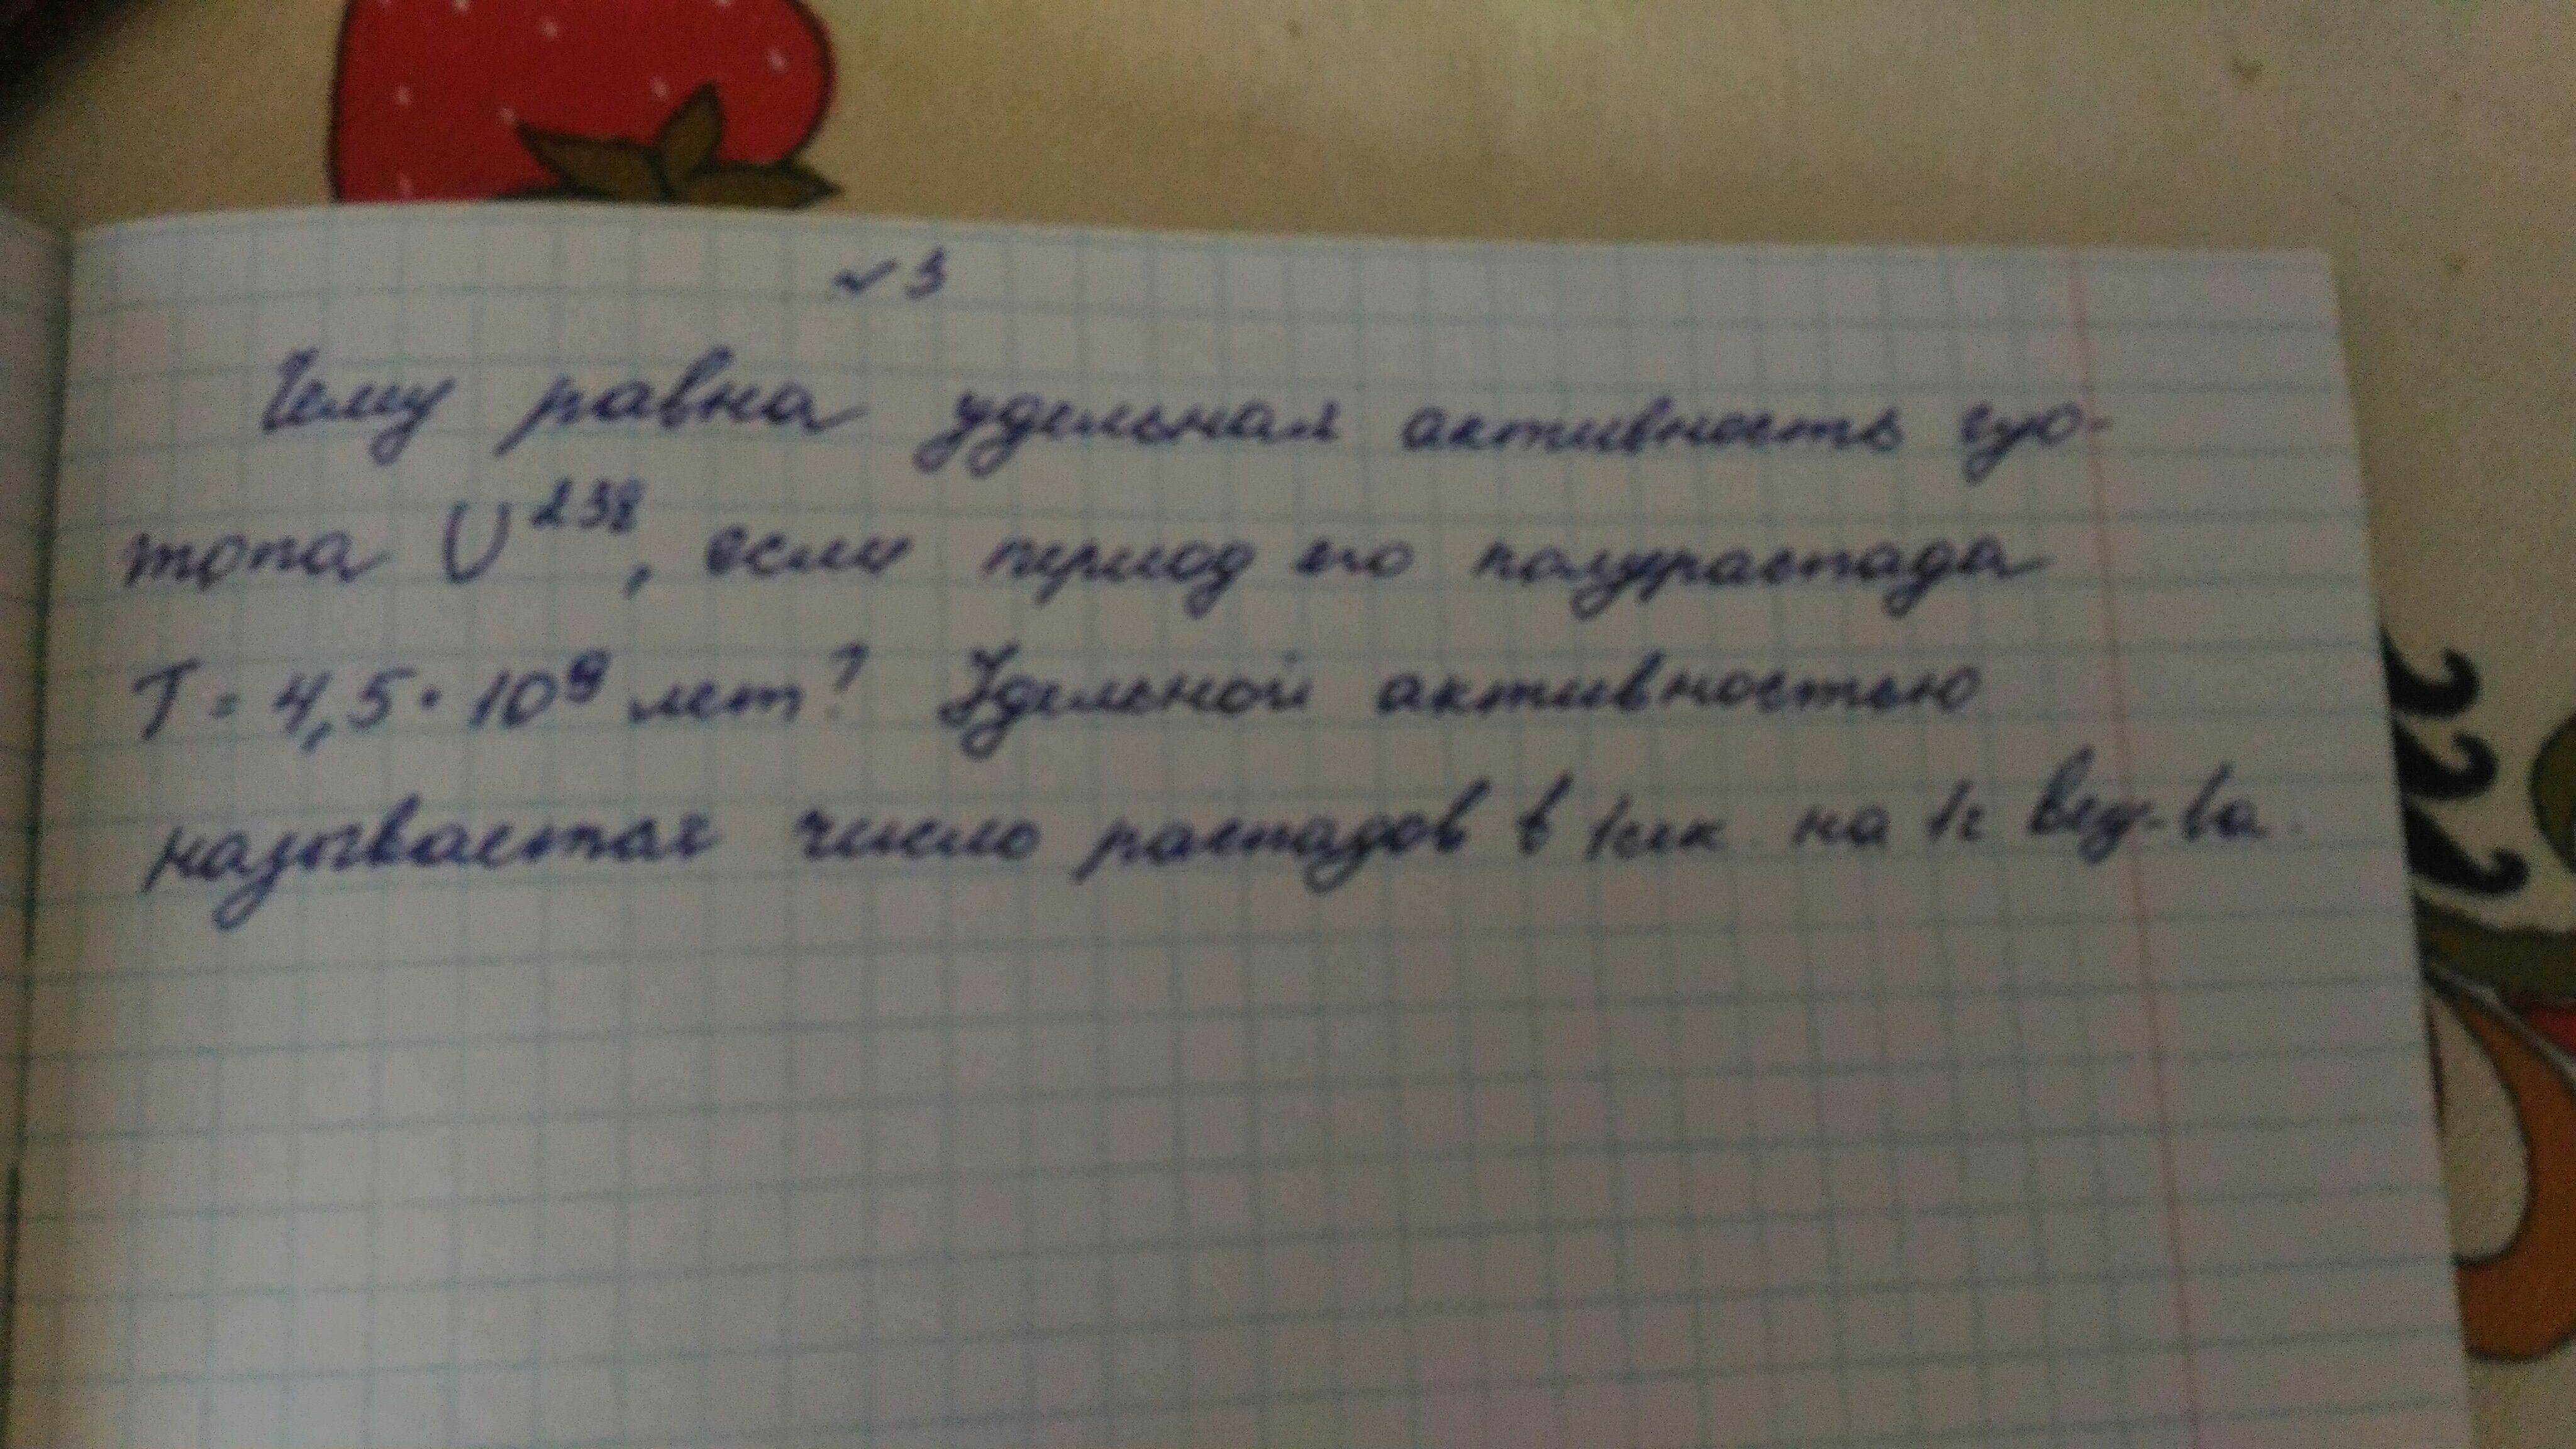 № 3
Чему равна удельная активность изо-
топа U²³⁸, если период его полураспада
T = 4,5 · 10⁹ лет? Удельной активностью
называется число распадов в 1сек на 1г вещ-ва.